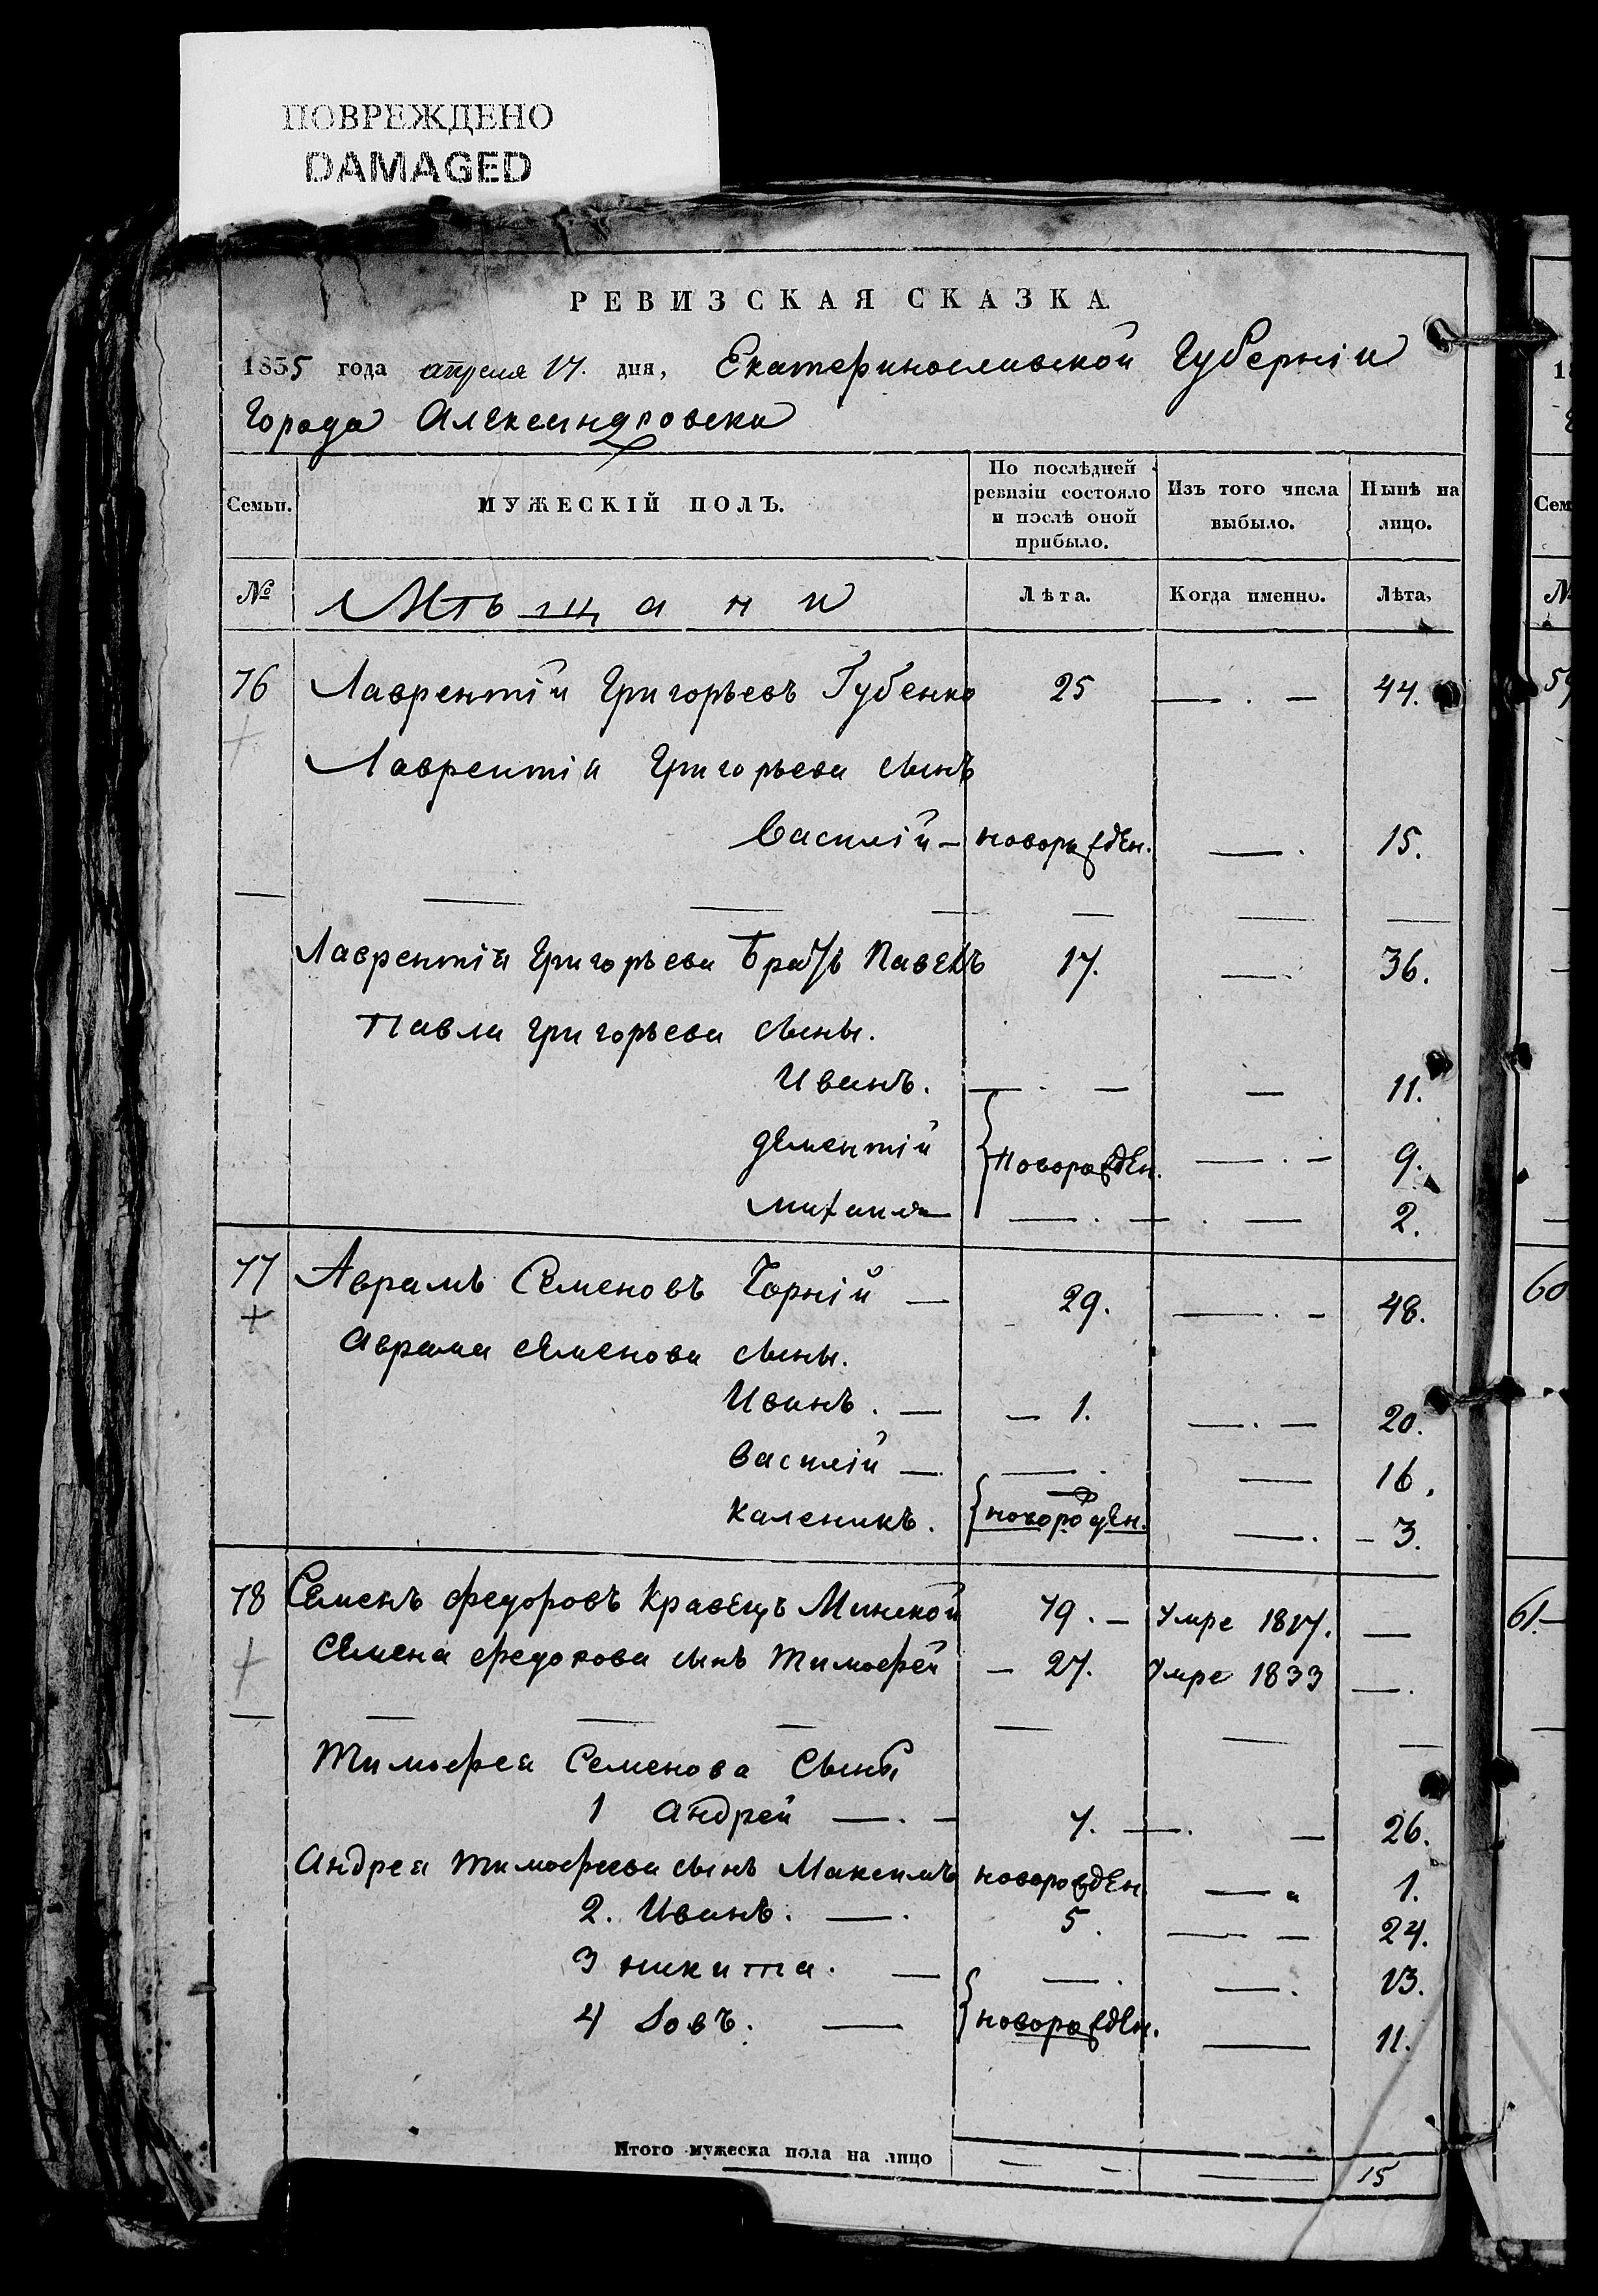 ПОВРЕЖДЕНО
DAMAGED
РЕВИЗСКАЯ СКАЗКА
1835 года апреля 17. дня, Екатеринославской Губерніи
Города Александровска
Семьи. МУЖЕСКІЙ ПОЛЪ. По послѣдней ревизіи состояло и послѣ оной прибыло. Изъ того числа выбыло. Нынѣ на лицо.
№ Мѣщани Лѣта. Когда именно. Лѣта,
76 Лаврентій Григорьевъ Губенко 25 — . — 44.
Лаврентія Григорьева сынъ
Василій — новорожден. — . 15.
Лаврентія Григорьева Братъ Павелъ 17. — . 36.
Павла Григорьева сыны.
Иванъ. — . — — 11.
Дементій новорожден. — . — 9.
Михаила — — . — . — 2.
77 Аврамъ Семеновъ Чорній — 29. — . — 48.
Аврама Семенова сыны.
Иванъ. — — 1. — . — 20.
Василій — — . — 16.
Каленикъ. новорожден. — . – 3.
78 Семенъ Федоровъ Кравецъ Минской 79. — Умре 1817. —
Семена Федорова сынъ Тимофей — 27. Умре 1833 — .
Тимофея Семенова Сыны
1 Андрей — . — 7. — . — 26.
Андрея Тимофеева сынъ Максимъ новорожден — 1.
2. Иванъ. — . 5. — — 24.
3 Никита. — — . — . 13.
4 Іовъ. — новорожден. — 11.
Итого мужеска пола на лицо — — — 15
18
Сем
№
59
60
61. —